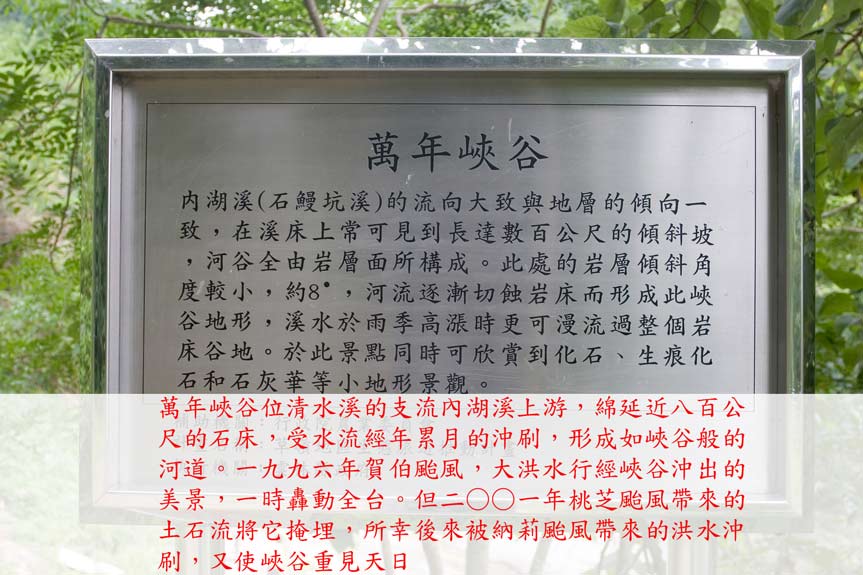 萬年峽谷
內湖溪(石鰻坑溪)的流向大致與地層的傾向一
致，在溪床上常可見到長達數百公尺的傾斜坡
，河谷全由岩層面所構成。此處的岩層傾斜角
度較小，約8°，河流逐漸切蝕岩床而形成此峽
谷地形，溪水於雨季高漲時更可漫流過整個岩
床谷地。於此景點同時可欣賞到化石、生痕化
石和石灰華等小地形景觀。
萬年峽谷位清水溪的支流內湖溪上游，綿延近八百公
尺的石床，受水流經年累月的沖刷，形成如峽谷般的
河道。一九九六年賀伯颱風，大洪水行經峽谷沖出的
美景，一時轟動全台。但二〇〇一年桃芝颱風帶來的
土石流將它掩埋，所幸後來被納莉颱風帶來的洪水沖
刷，又使峽谷重見天日